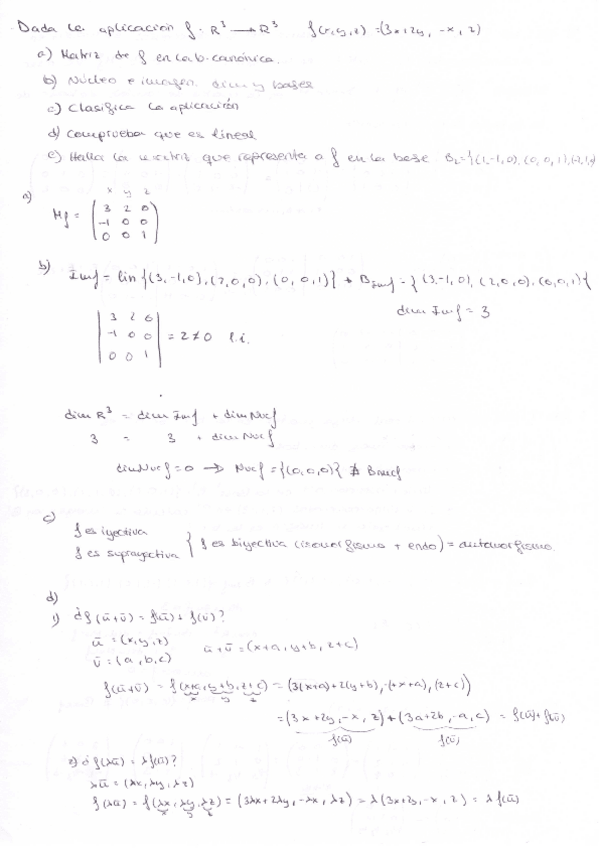 Dada la aplicación f: R³ → R³ f(x,y,z) = (3x+2y, -x, z)
a) Matriz de f en la b. canónica.
b) Núcleo e imagen. dim y bases
c) Clasifica la aplicación
d) Comprueba que es lineal
e) Halla la matriz que representa a f en la base B₂={(1,-1,0),(0,0,1),
a)
x y z
Mf = (3 2 0
-1 0 0
0 0 1)
b)
Imf = lin {(3,-1,0),(2,0,0),(0,0,1)} → B_Imf = {(3,-1,0),(2,0,0),(0,0,1)}
dim Imf = 3
|3 2 0
-1 0 0
0 0 1| = 2≠0 l.i.
dim R³ = dim Imf + dim Nucf
3 = 3 + dim Nucf
dim Nucf = 0 → Nucf = {(0,0,0)} ∄ B_Nucf
c)
f es inyectiva
f es suprayectiva } f es biyectiva (isomorfismo + endo) = automorfismo.
d)
1) ¿f(ū+v̄) = f(ū)+f(v̄)?
ū = (x,y,z)
v̄ = (a,b,c)
ū+v̄ = (x+a, y+b, z+c)
f(ū+v̄) = f(x+a, y+b, z+c) = (3(x+a)+2(y+b), -(x+a), (z+c))
x y z
= (3x+2y, -x, z) + (3a+2b, -a, c) = f(ū)+f(v̄)
f(ū) f(v̄)
2) ¿f(λū) = λf(ū)?
λū = (λx, λy, λz)
f(λū) = f(λx, λy, λz) = (3λx+2λy, -λx, λz) = λ(3x+2y, -x, z) = λf(ū)
x y z